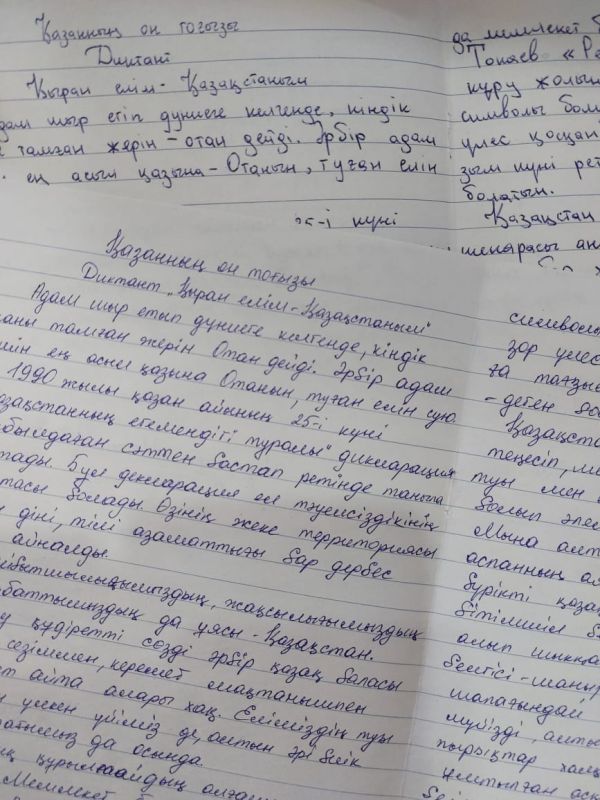 Қазанның он тоғызы
Диктант
Қыран елім - Қазақстаным
дам шыр етіп дүниеге келгенде, кіндік
тамған жерін - отан дейді. Әрбір адам
ең асыл қазына - Отанын, туған елін
25-і күні
да мемлекет
Тоқаев «Ре
құру жолын
символы бол
үлес қосқан
зым күні рет
болатын.
Қазақстан
шекарасы
Қазанның он тоғызы
Диктант „Қыран елім - Қазақстаным"
Адам шыр етіп дүниеге келгенде, кіндік
қаны тамған жерін Отан дейді. Әрбір адам
ең асыл қазына Отанын, туған елін сүю.
1990 жылы қазан айының 25-і күні
азақстанның егемендігі туралы" дикларация
былдаған сәттен бастап ретінде таныла
тады. Бұл декларация ел тәуелсіздікінің
тасы болады. Өзінің жеке территориясы
діні, тілі азаматтығы бар дербес
айналды.
жақсылығымыздың
баттымыздың да ұясы - Қазақстан.
құдіретті сөзді әрбір қазақ баласы
сезіммен, керемет мақтанышпен
айта алары хақ. Еліміздің туы
үлкен үйіміз де, алтын әрі биік
да осында.
құрылғандың алғаш
Мемлекет
символы
зор үлес
ға тағзы
- деген
Қазақста
теңесіп,
туы мен
болып
Мына алт
аспанның
бүркті қаза
бітімшіл
алып шыққа
белгісі - шаңыр
шапағындай
мүйізді, алты
пырақтар халқ
ұмтылған